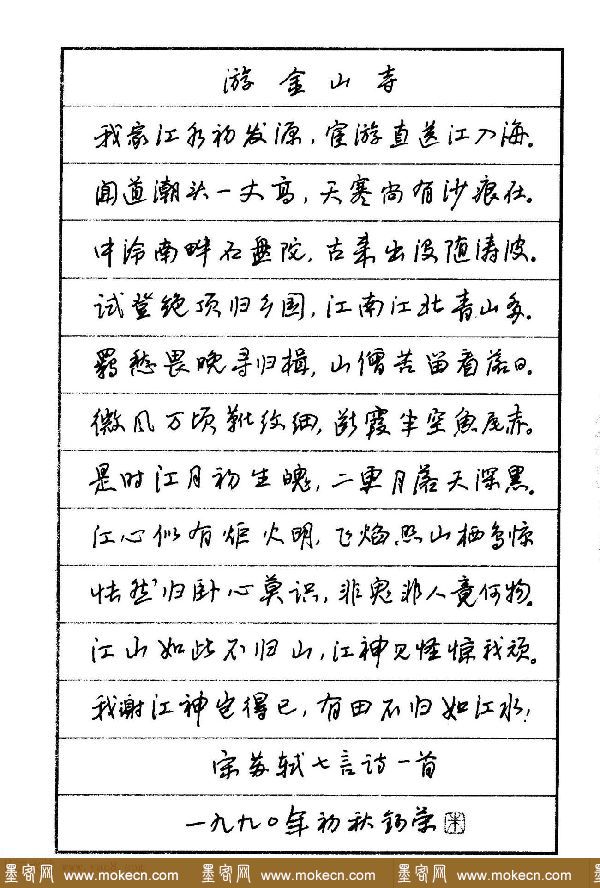 游金山寺
我家江水初发源，宦游直送江入海。
闻道潮头一丈高，天寒尚有沙痕在。
中泠南畔石盘陀，古来出没随涛波。
试登绝顶归乡国，江南江北青山多。
羁愁畏晚寻归楫，山僧苦留看落日。
微风万顷靴纹细，断霞半空鱼尾赤。
是时江月初生魄，二更月落天深黑。
江心似有炬火明，飞焰照山栖鸟惊
怅然归卧心莫识，非鬼非人竟何物。
江山如此不归山，江神见怪惊我顽。
我谢江神岂得已，有田不归如江水！
宋苏轼七言诗一首
一九九〇年初秋
墨客网 www.mokecn.com 墨客网 www.mokecn.com 墨客网 www.mokecn.com 墨客